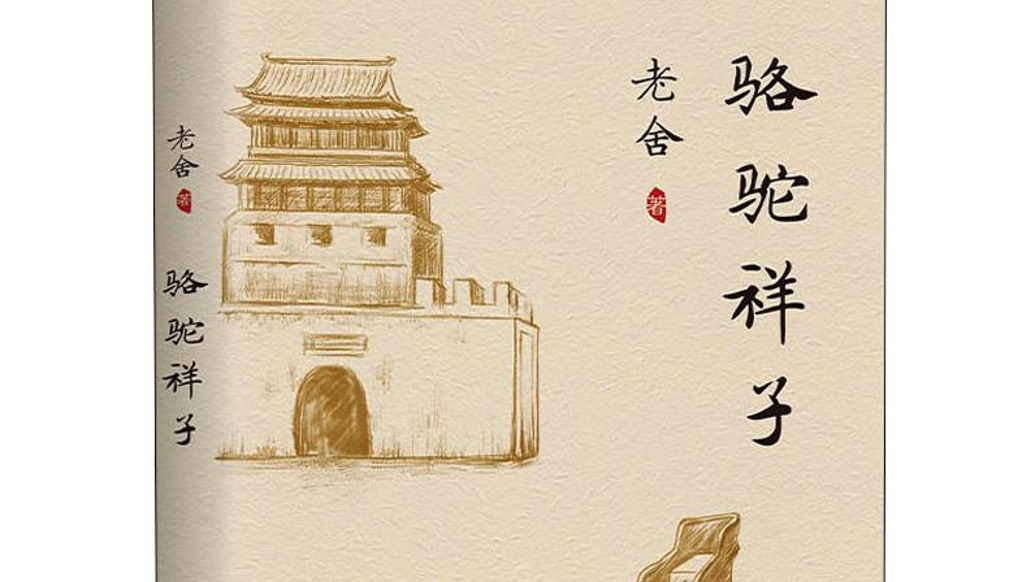 骆驼祥子
老舍
著
老舍
著
骆驼祥子